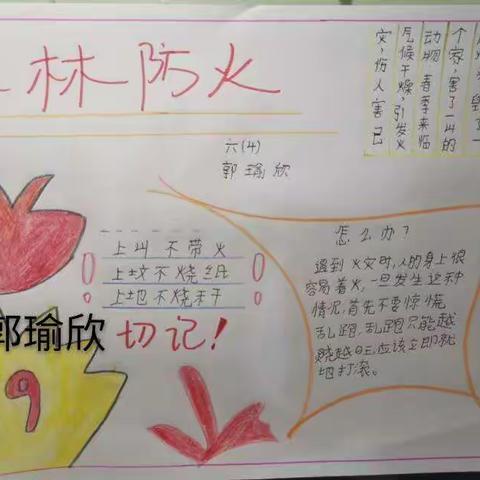 林防火
六(4)
郭瑜欣
个家,害了一山的
动物 春季来临
气候干燥,引发火
灾,伤人害已
上山不带火
上坟不烧纸
上地不烧秆
切记!
郭瑜欣
9
怎么办?
遇到火灾时,人的身上很
容易着火,一旦发生这种
情况,首先不要惊慌
乱跑,乱跑只能越
烧越旺,应该立即就
地打滚。